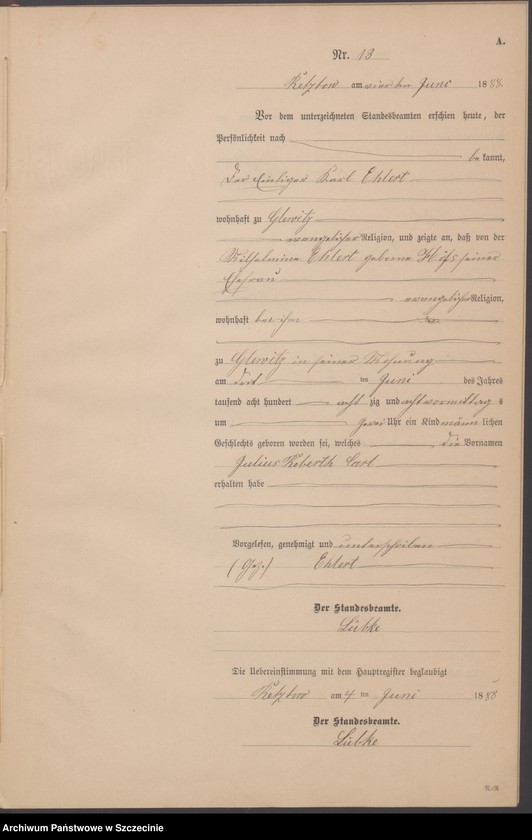 A.
Nr. 13
Ketzbow am vierten Juni 1888
Vor dem unterzeichneten Standesbeamten erschien heute, der
Persönlichkeit nach
be kannt,
Der Karl Ehlert
wohnhaft zu Glewitz
evangelischer Religion, und zeigte an, daß von der
Wilhelmine Ehlert geborne seiner
Ehefrau
evangelischer Religion,
wohnhaft bei ihm
zu Glewitz in seiner Wohnung
am im Juni des Jahres
tausend acht hundert acht zig und acht vormittag s
um zwei Uhr ein Kind männ lichen
Geschlechts geboren worden sei, welches die Vornamen
Julius Roberth Carl
erhalten habe
Vorgelesen, genehmigt und unterschrieben
(Gez.) Ehlert
Der Standesbeamte.
Lübke
Die Uebereinstimmung mit dem Hauptregister beglaubigt
Ketzbow am 4 ten Juni 1888
Der Standesbeamte.
Lübke
Archiwum Państwowe w Szczecinie